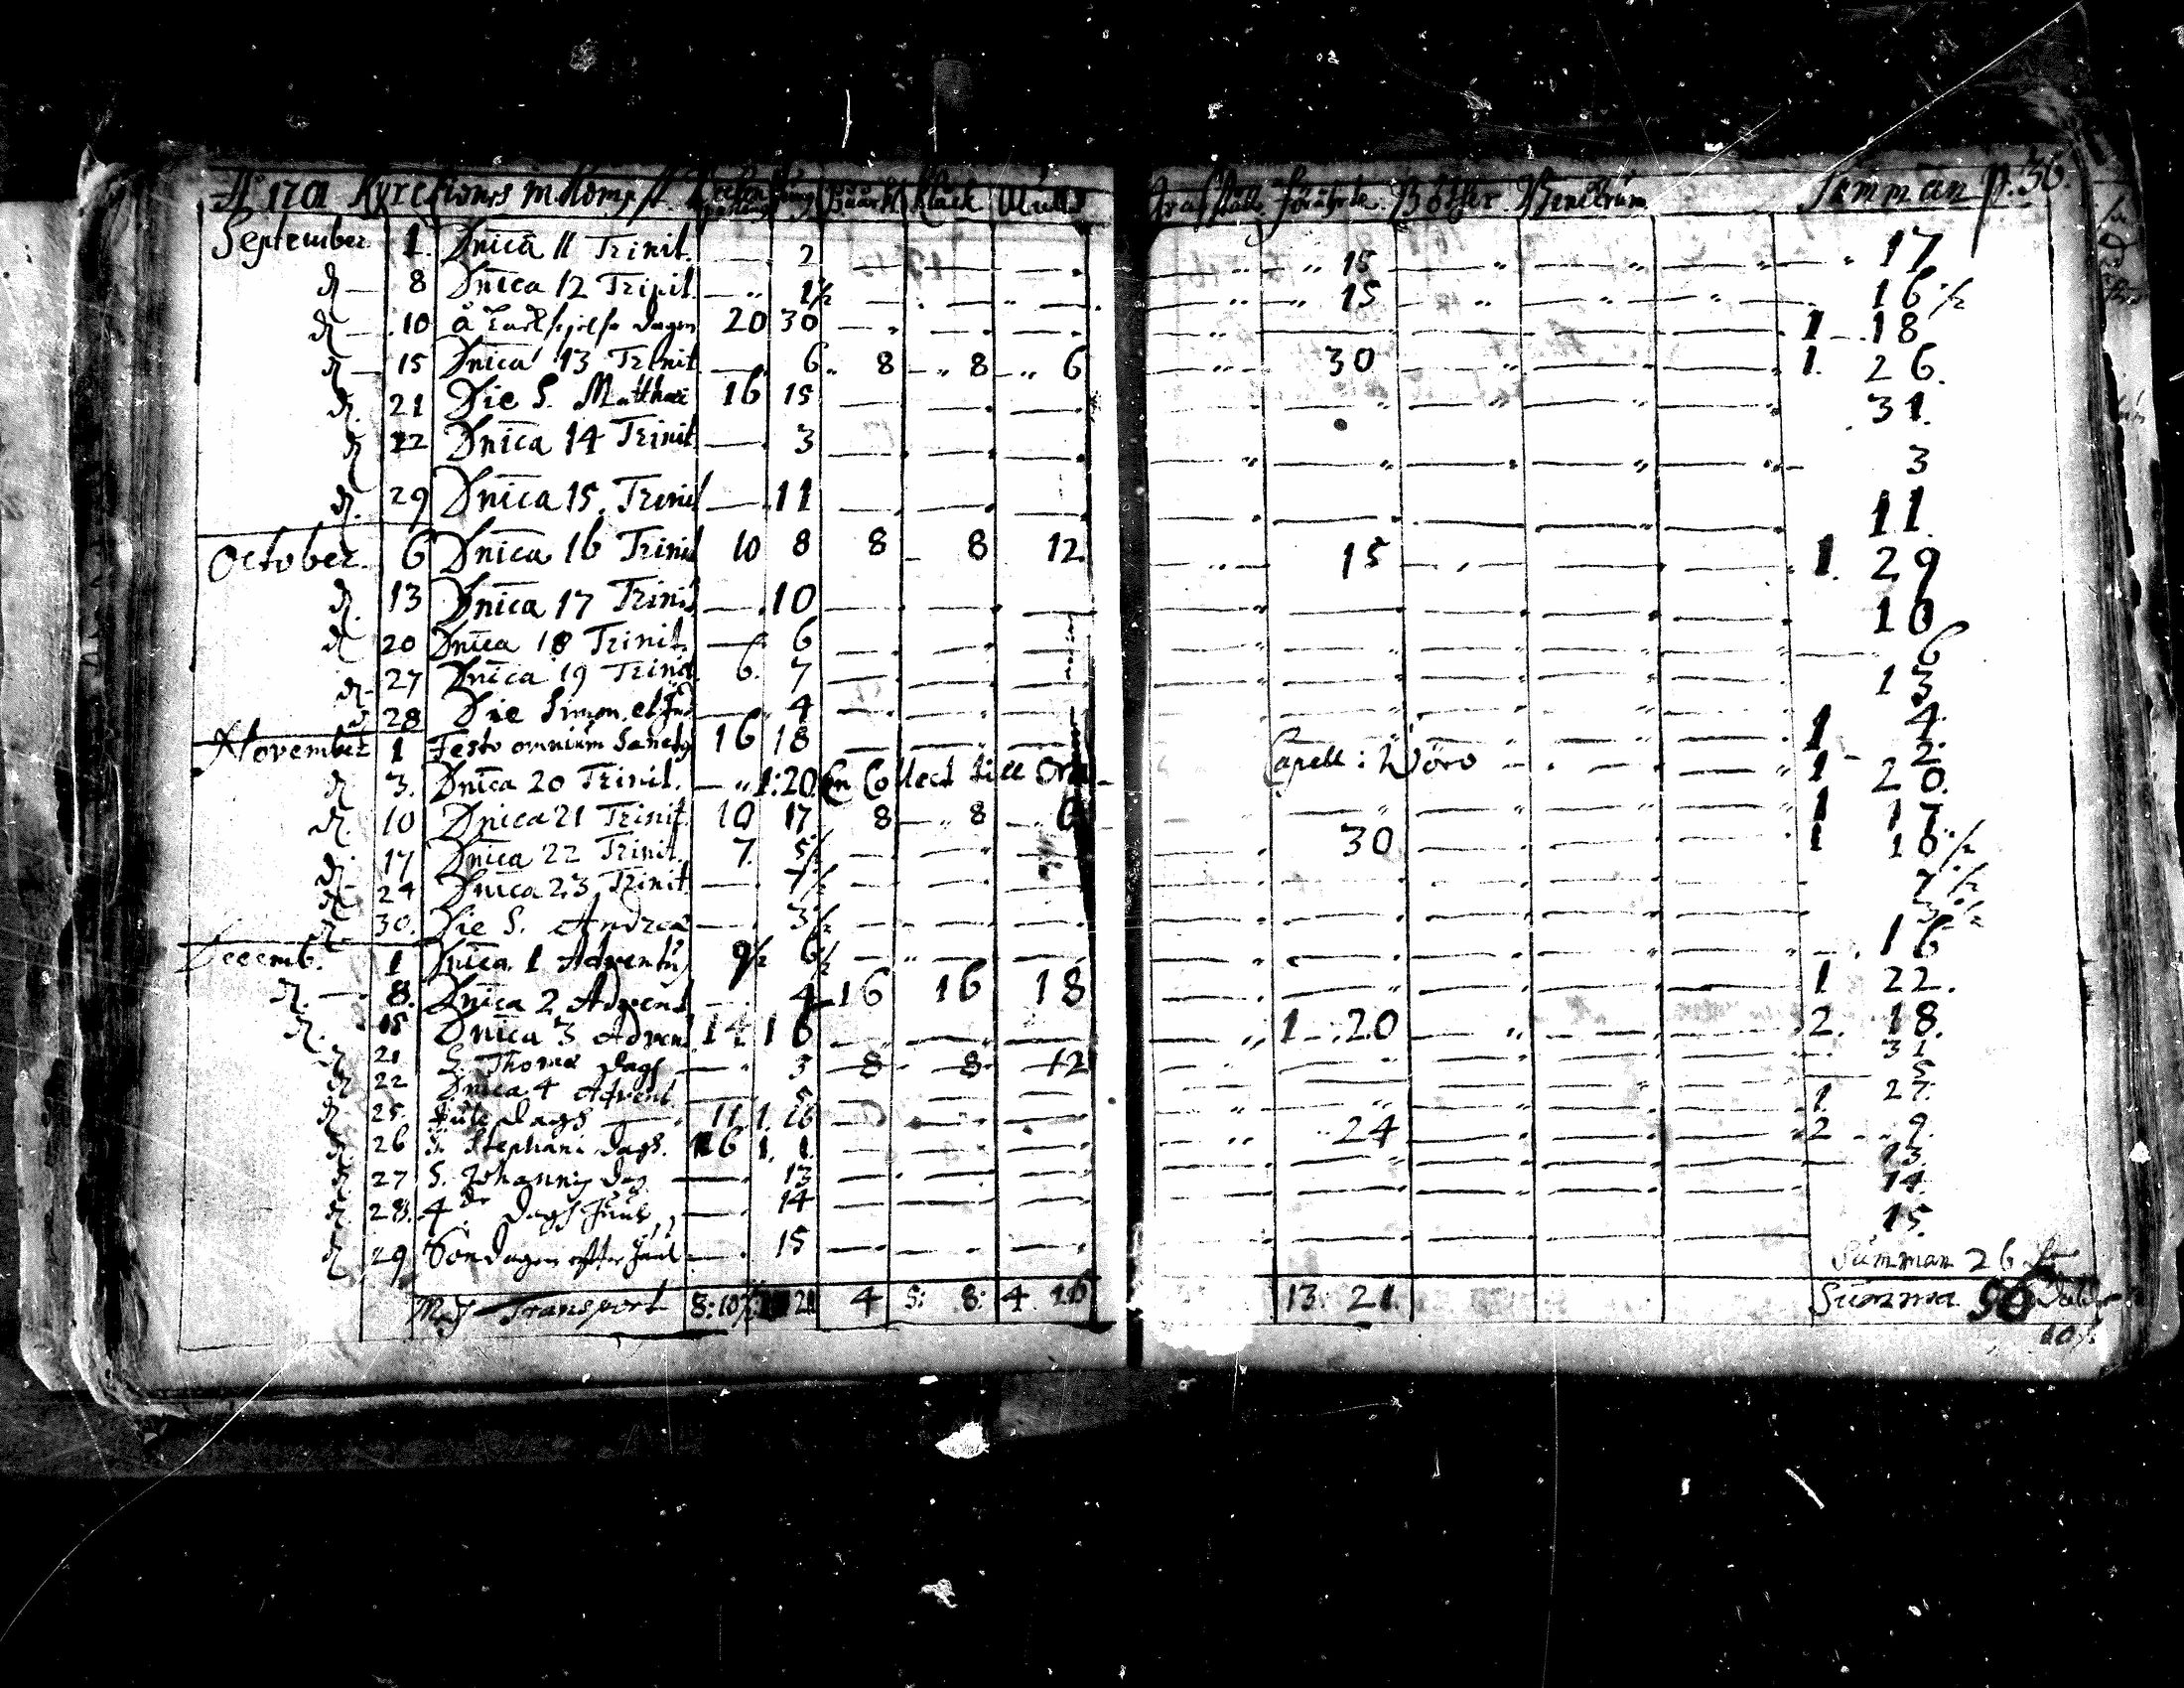 Aᵒ 1701 Kyrckiones inkomst Klåck Mulld
September 1. Dnica 11 Trinit. — 2 — — —
d — 8 Dnica 12 Trinit. — 1½ — — —
d — 10 å Tacksejelse dagen 20 30 — — —
d — 15 Dnica 13 Trinit — 6 8 — 8 — 6
d. 21 Die S. Matthæi 16 15 — — —
d 22 Dnica 14 Trinit — 3 — — —
d. 29 Dnica 15. Trinit — 11 — — —
October. 6 Dnica 16 Trinit 10 8 8 — 8 12
d. 13 Dnica 17 Trinit — 10 — — —
d 20 Dnica 18 Trinit. — 6 — — —
d. 27 Dnica 19 Trinit 6. 7 — — —
d 28 Die Simon. et Jud — 4 — — —
November 1 Festo omnium Sanct 16 18 — — —
d 3. Dnica 20 Trinit. — 1:20 En Collect till
d. 10 Dnica 21 Trinit. 10 17 8 — 8 — 6
d. 17 Dnica 22 Trinit. 7. 5½ — — —
d. 24 Dnica 23 Trinit — 7½ — — —
d 30. Die S. Andreæ — 3½ — — —
Decemb. 1 Dnica 1 Adventus 9½ 6½ — — —
d. — 8. Dnica 2 Advent — 4 16 16 18
d. 15 Dnica 3 Advent 14 16 — — —
d 21 S. Thomæ dagh — 3 8 8 12
d 22 Dnica 4 Advent — 5 — — —
d 25. Jule dagh — 11 1. 16 — — —
d. 26 S. Stephani dagh. 16 1. 1. — — —
d 27 S. Johannis dag — 13 — — —
d. 28. 4de dagh Juul — 14 — — —
d 29 Söndagen efter Juul — 15 — — —
Transport 8:10½ 21 4 5: 8: 4 16
Böther Summan p. 36.
— 15 — — — 17
— 15 — — — 16½
— — — — — 1 — 18
— 30 — — — 1. 26.
— — — — 31.
— — — — — 3
— — — — — 11.
— 15 — — — 1. 29
— — — — — 10
— — — — — 6
— — — — — 13
— — — — 4.
— — — — 1 — 2.
Capell: Wöro — — — 1 20.
— — — — — 1 17.
— 30 — — — 1 10½
— — — — — 7½
— — — — — 3½
— — — — — 16
— — — — — 1 22.
— 1 — 20 — — — 2. 18.
— — — — — 31
— — — — — 5
— — — — — 1. 27.
— 24 — — — 2 — 9.
— — — — — 13.
— — — — — 14.
— — — — — 15.
Summan 26
13: 21. Summa 96 Daler
10½